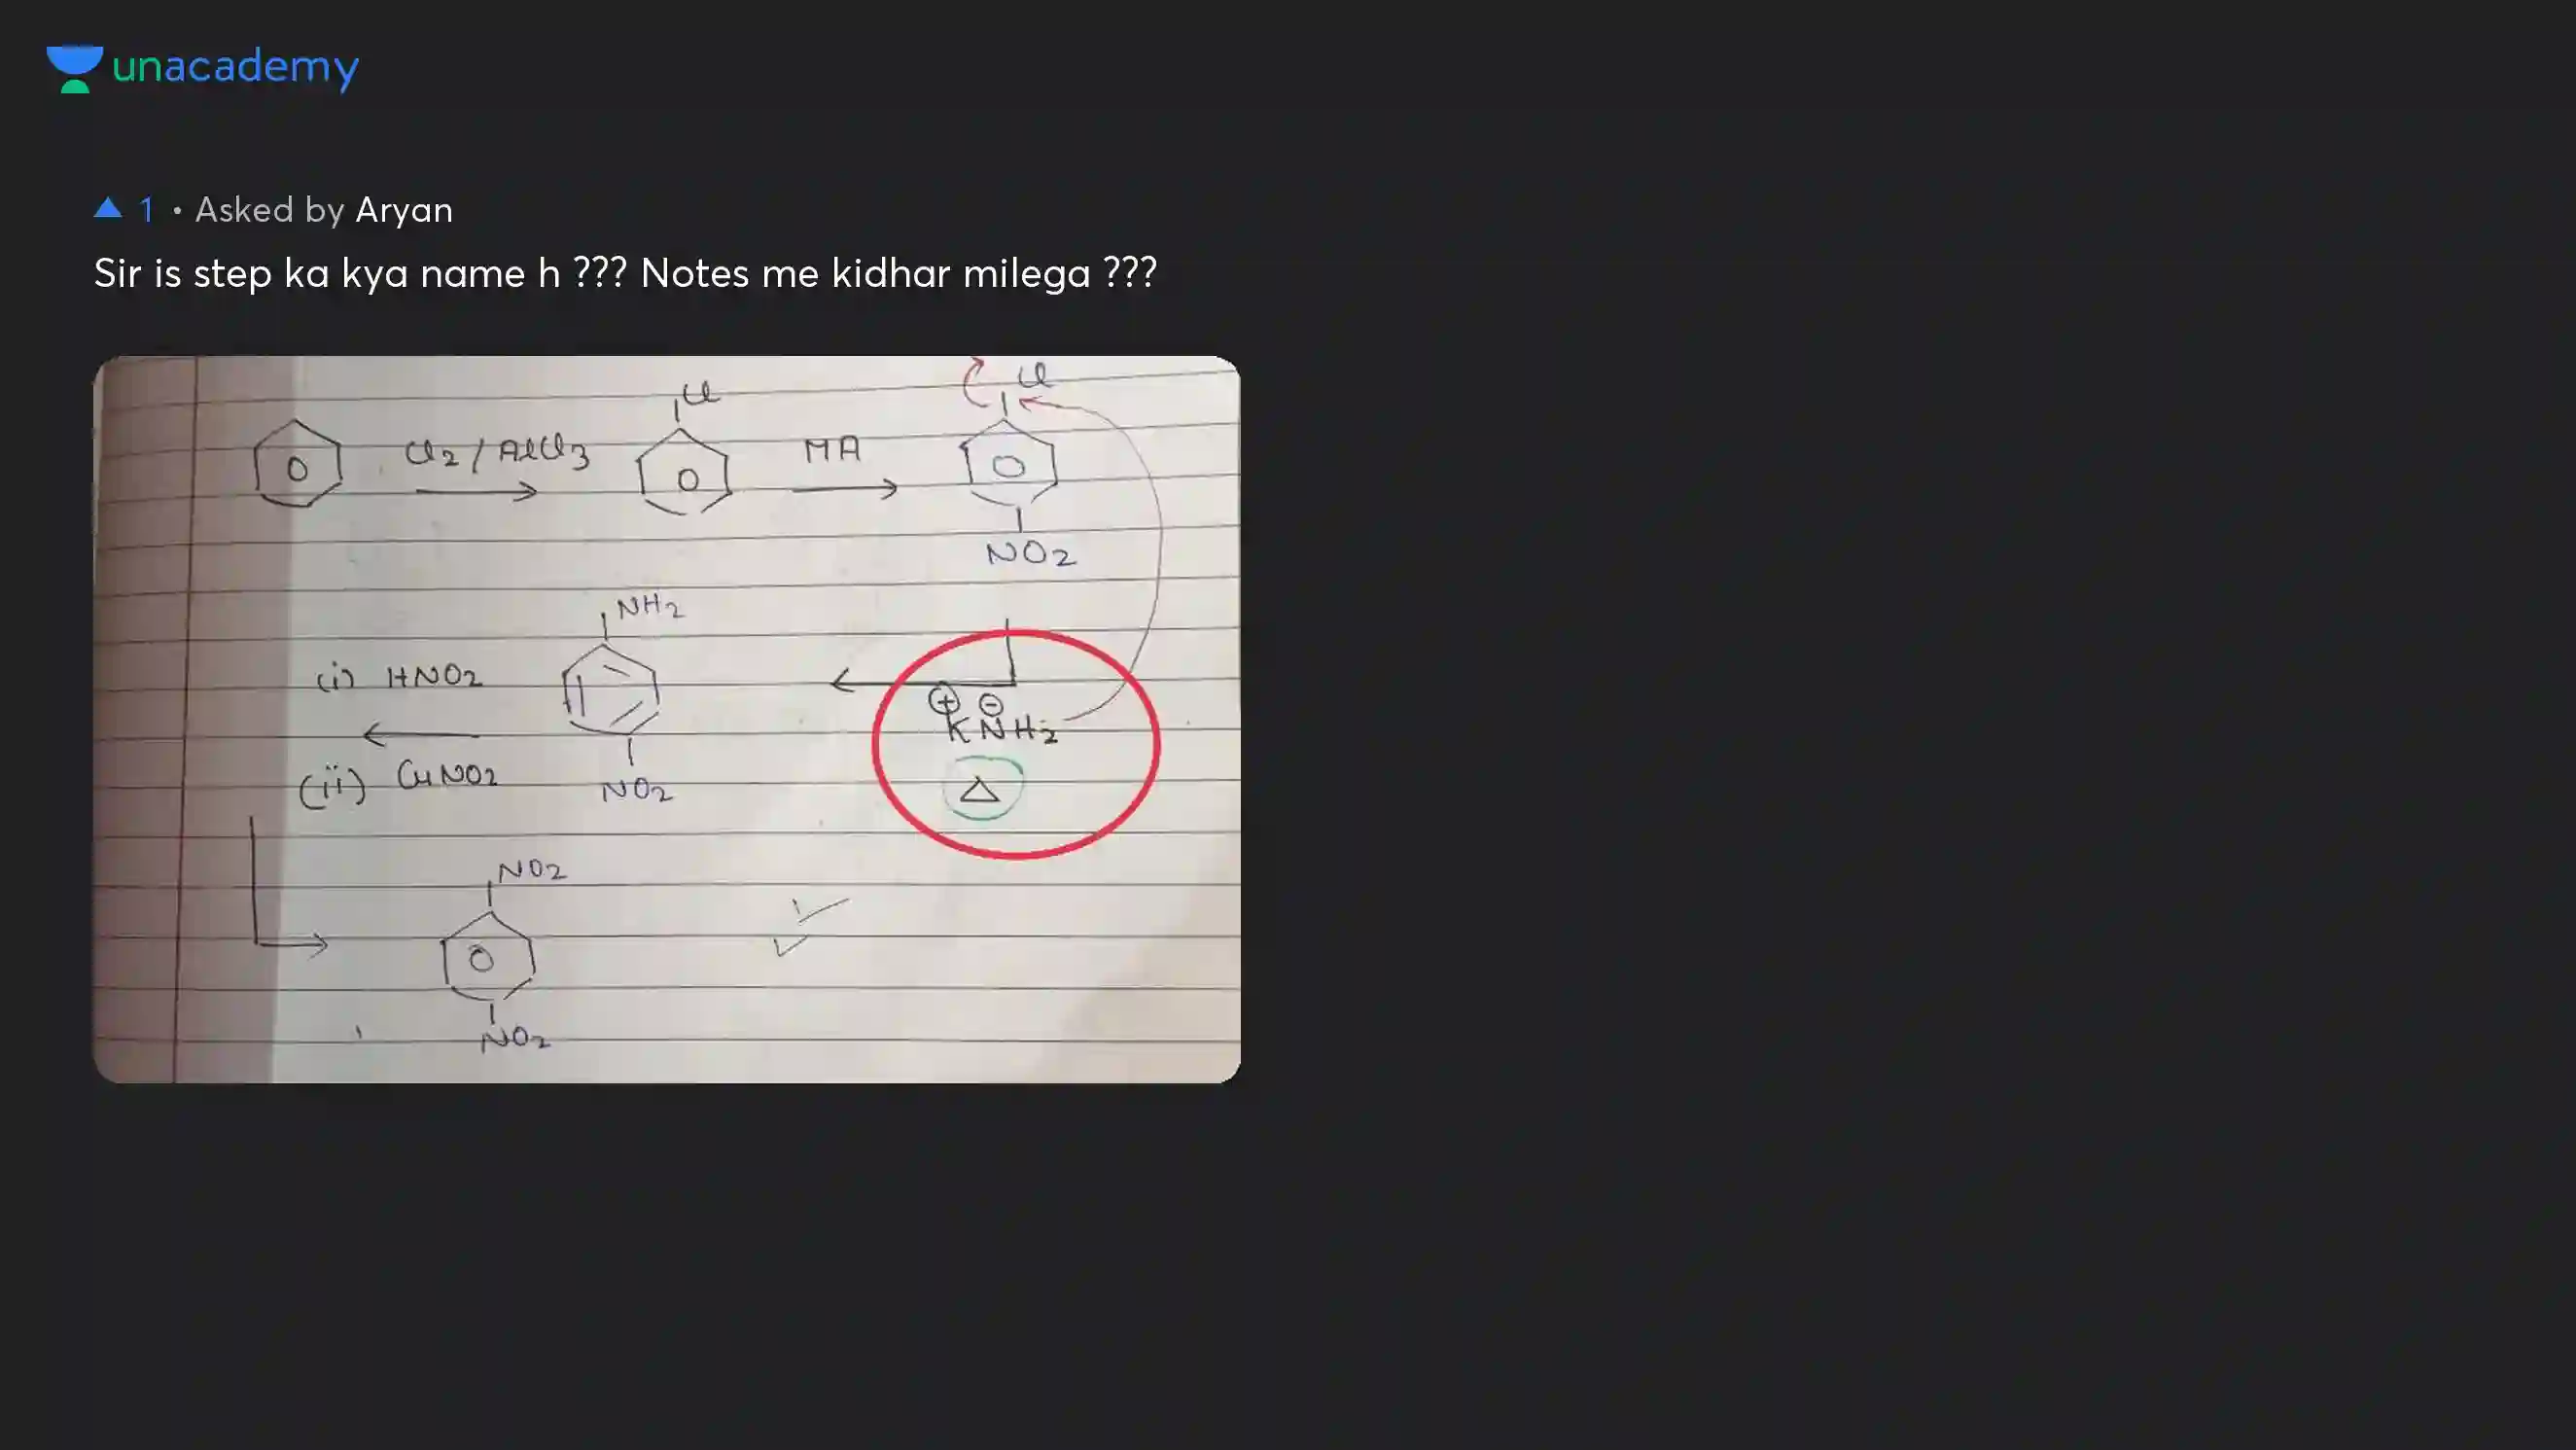 unacademy
1 • Asked by Aryan
Sir is step ka kya name h ??? Notes me kidhar milega ???
Cl
Cl
Cl2 / AlCl3
MA
NO2
NH2
(i) HNO2
⊕ ⊖
KNH2
(ii) CuNO2
NO2
Δ
NO2
NO2